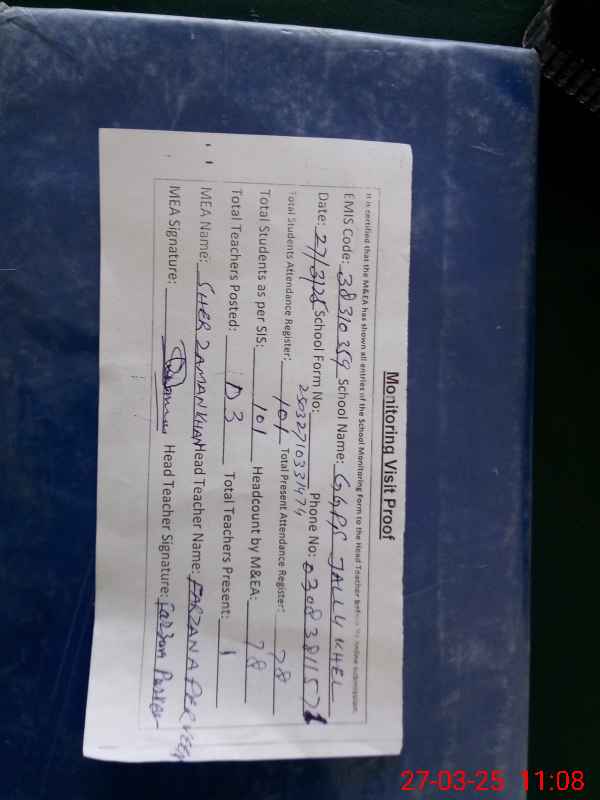 Monitoring Visit Proof
It is certified that the M&EA has shown all entries of the School Monitoring Form to the Head Teacher before his online submission.
EMIS Code: 38310359 School Name: GGPS JALLU KHEL
Date: 27/3/25 School Form No: 25032710331474 Phone No: 03083811571
Total Students Attendance Register: 101 Total Present Attendance Register: 78
Total Students as per SIS: 101 Headcount by M&EA: 78
Total Teachers Posted: 03 Total Teachers Present: 1
MEA Name: SHER ZAMAN KHAN Head Teacher Name: FARZANA PERVEEN
MEA Signature: Head Teacher Signature: Farzana Perveen
27-03-25 11:08